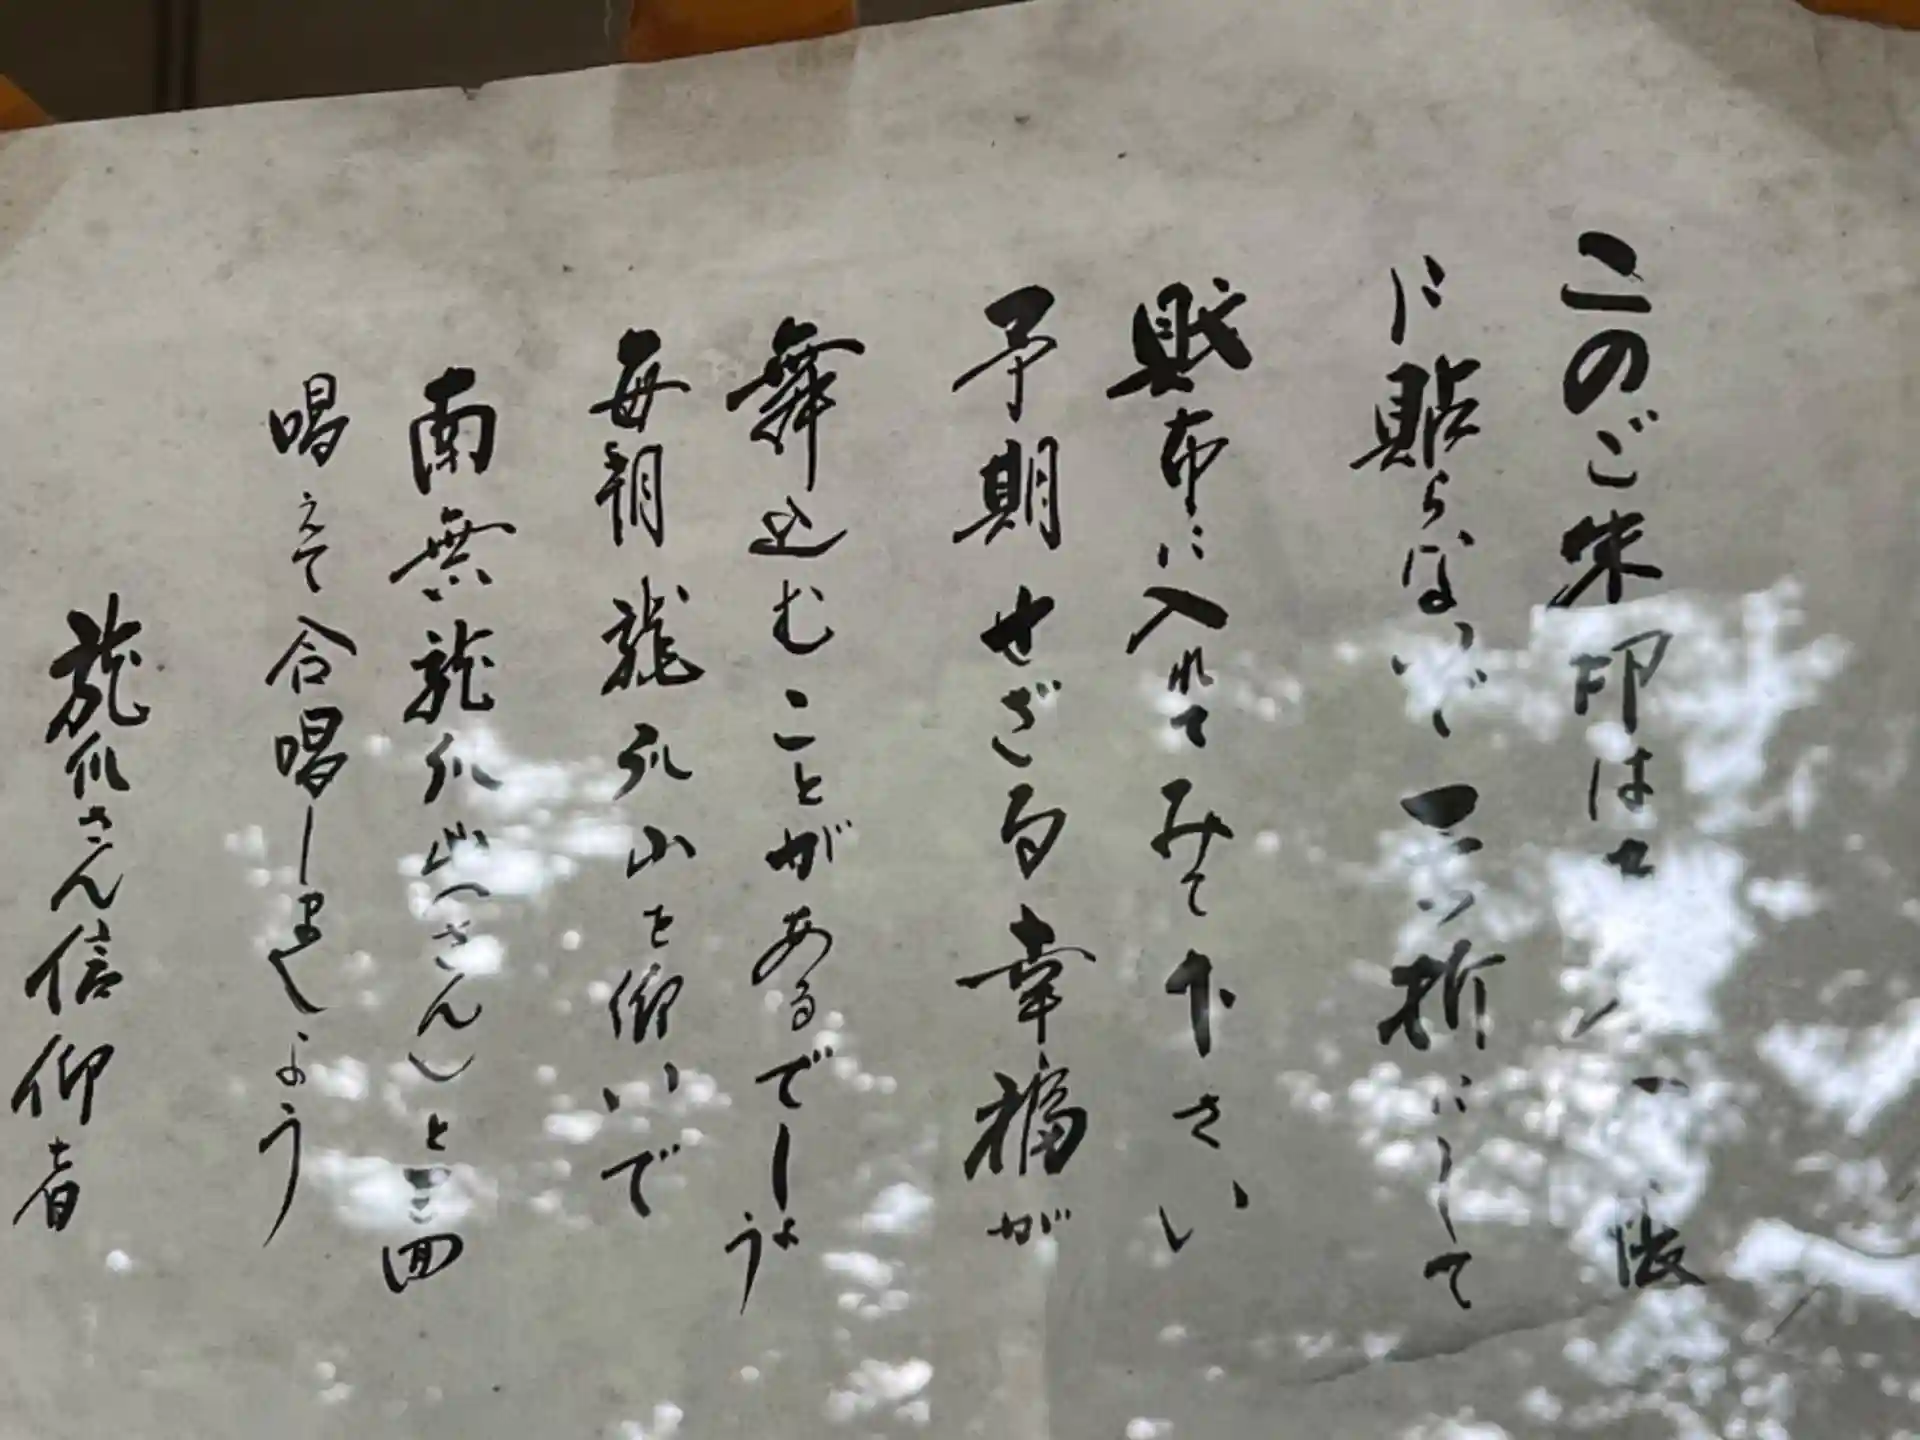 このご朱印は
に貼らないで三ツ折にして
財布に入れてみて下さい
予期せざる幸福が
舞込むことがあるでしょう
毎朝龍爪山を仰いで
南無龍爪山(さん)と三回
唱えて合唱しましょう
龍爪さん信仰者